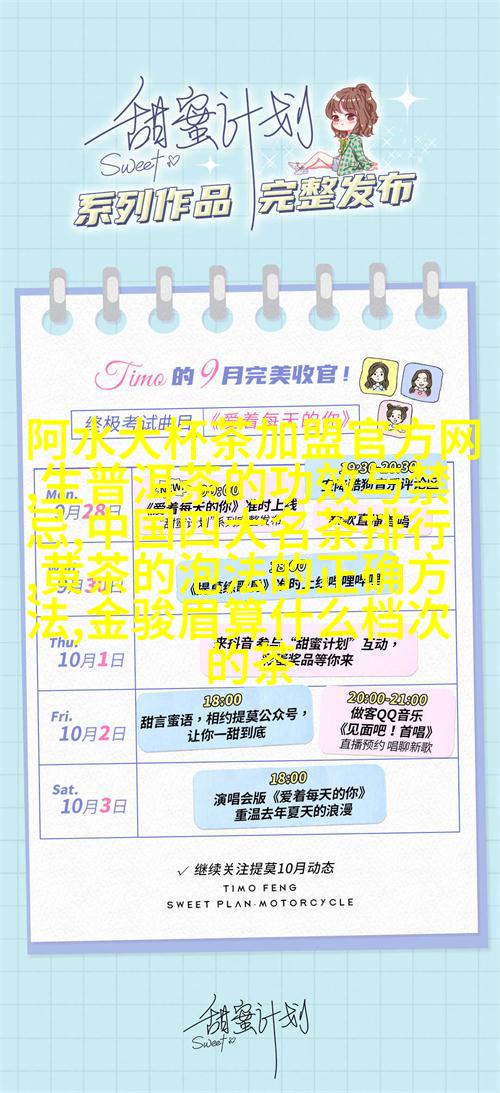 甜蜜计划
Sweet
系列作品 完整发布
Timo的9月完美收官!
终极考试曲目 《爱着每天的你》
阿水大杯茶加盟官方网
,生普洱茶的功效与禁
忌,中国四大名茶排行
,黄茶的泡法的正确方
法,金骏眉算什么档次
的茶
Mon.
9月28日
《爱着每天的你》准时上线
19:30-20:30
9月30日
18:00
Thu.
10月1日
来抖音 参与“甜蜜计划”互动,
奖品等你来
Fri.
10月2日
18:00
甜言蜜语,相约提莫公众号,
让你一甜到底
20:00-21:00
做客QQ音乐
《见面吧!首唱》
直播预约 唱聊新歌
Sat.
10月3日
18:00
演唱会版《爱着每天的你》
重温去年夏天的浪漫
✓ 继续关注提莫10月动态
TIMO FENG
SWEET PLAN-MOTORCYCLE
甜蜜计划
Sweet